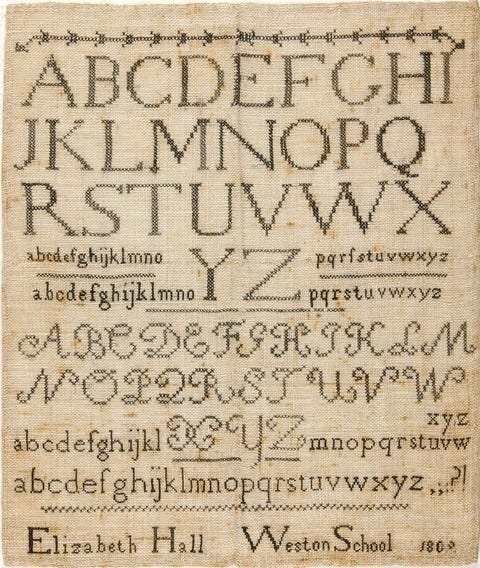 ABCDEFGHI
JKLMNOPQ
RSTUVWX
abcdefghijklmno YZ pqrſstuvwxyz
abcdefghijklmno pqrstuvwxyz
ABCDEFGHIKLM
NOPQRSTUVW
xyz
abcdefghijkl XYZ mnopqrstuvw
abcdefghijklmnopqrstuvwxyz ,;:.?!
Elizabeth Hall Weston School